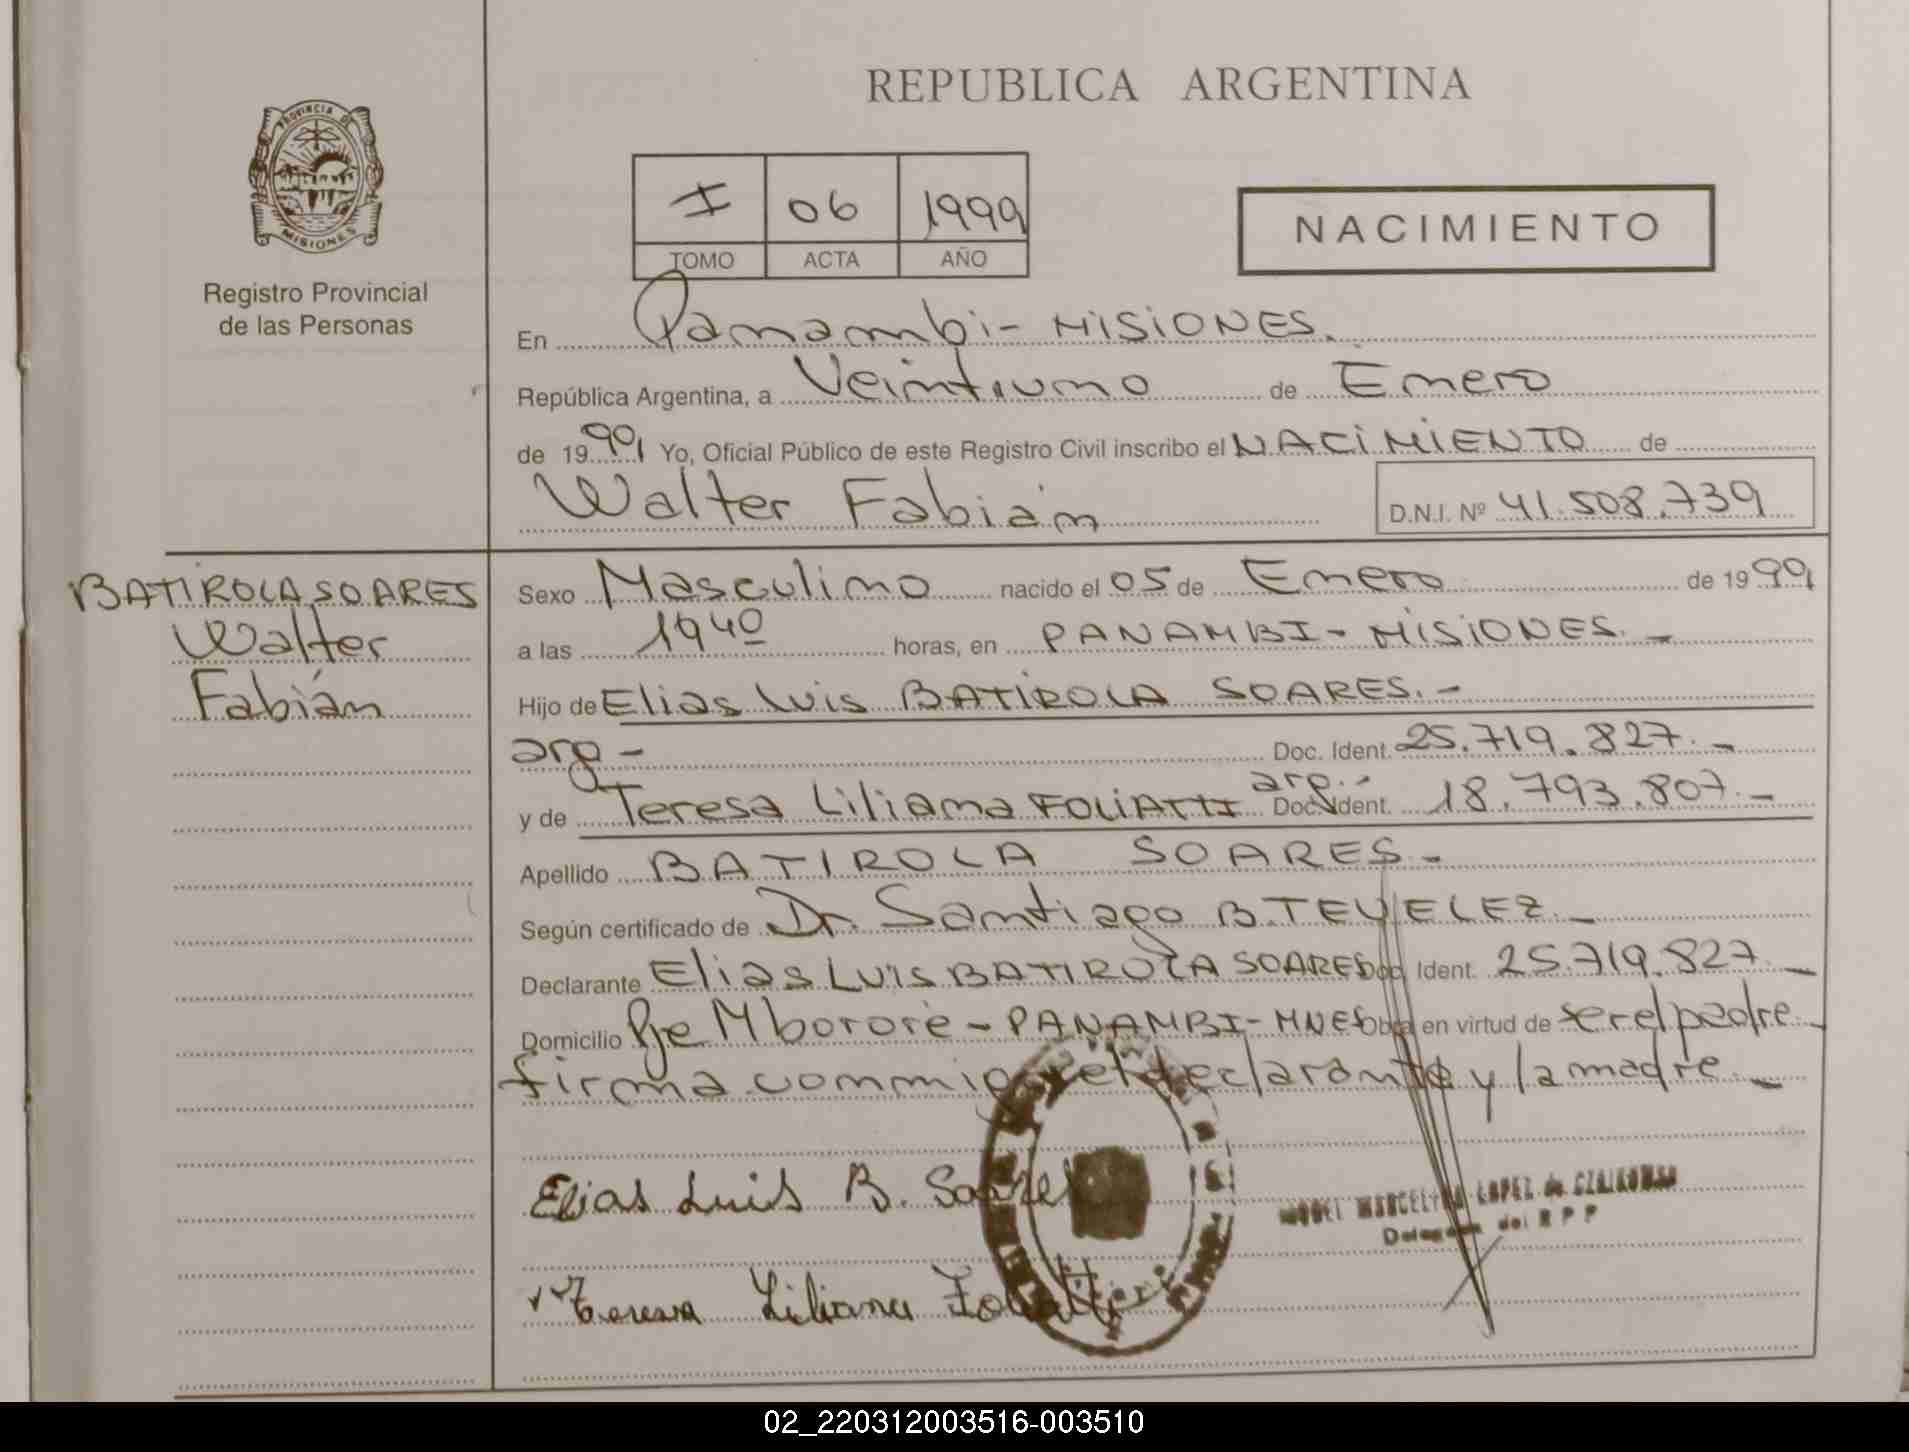 REPUBLICA ARGENTINA
PROVINCIA DE
MISIONES
Registro Provincial
de las Personas
I 06 1999
TOMO ACTA AÑO
NACIMIENTO
En Panambi - MISIONES.
República Argentina, a Veintiuno de Enero
de 1999 Yo, Oficial Público de este Registro Civil inscribo el NACIMIENTO de
Walter Fabián D.N.I. Nº 41.508.739
BATIROLA SOARES
Walter
Fabián
Sexo Masculino nacido el 05 de Enero de 1999
a las 1940 horas, en PANAMBI - MISIONES. -
Hijo de Elias Luis BATIROLA SOARES. -
arg - Doc. Ident. 25.719.827. -
y de Teresa Liliana FOLIATTI arg. - Doc. Ident. 18.793.807. -
Apellido BATIROLA SOARES -
Según certificado de Dr. Santiago B. -
Declarante Elias LUIS BATIROLA SOARES Doc. Ident. 25.719.827 -
Domicilio Pje Mbororé - PANAMBI - MNES Obra en virtud de ser el padre. -
firma conmigo el declarante y la madre. -
Elias Luis B. Soares
Teresa Liliana Foliatti
LOPEZ de
Delegada del R P P
02_220312003516-003510